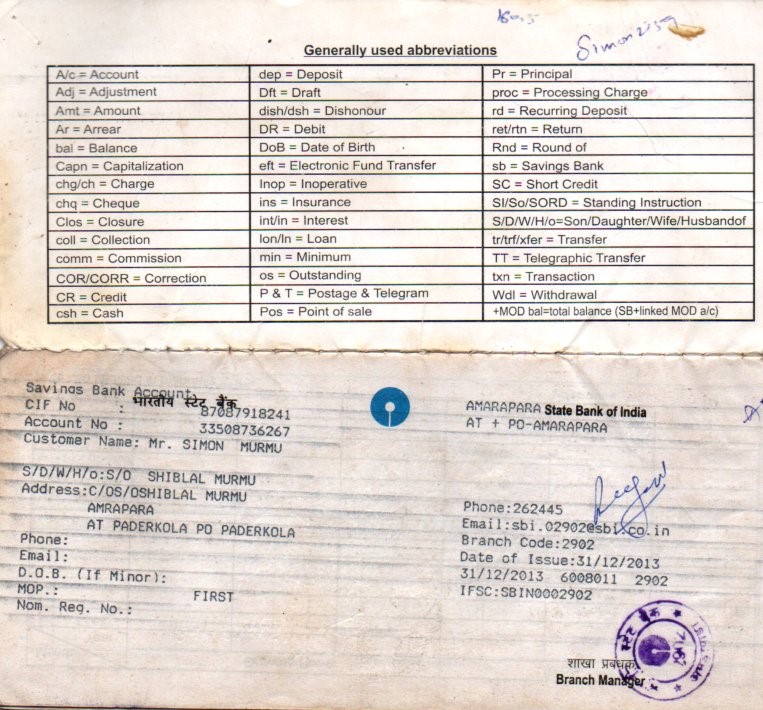 Simon
Generally used abbreviations
A/c = Account
Adj = Adjustment
Amt = Amount
Ar = Arrear
bal = Balance
Capn = Capitalization
chg/ch = Charge
chq = Cheque
Clos = Closure
coll = Collection
comm = Commission
COR/CORR = Correction
CR = Credit
csh = Cash
dep = Deposit
Dft = Draft
dish/dsh = Dishonour
DR = Debit
DoB = Date of Birth
eft = Electronic Fund Transfer
Inop = Inoperative
ins = Insurance
int/in = Interest
lon/ln = Loan
min = Minimum
os = Outstanding
P & T = Postage & Telegram
Pos = Point of sale
Pr = Principal
proc = Processing Charge
rd = Recurring Deposit
ret/rtn = Return
Rnd = Round of
sb = Savings Bank
SC = Short Credit
SI/So/SORD = Standing Instruction
S/D/W/H/o=Son/Daughter/Wife/Husbandof
tr/trf/xfer = Transfer
TT = Telegraphic Transfer
txn = Transaction
Wdl = Withdrawal
+MOD bal=total balance (SB+linked MOD a/c)
Savings Bank Account
भारतीय स्टेट बैंक
CIF No : 87087918241
Account No : 33508736267
Customer Name: Mr. SIMON MURMU
S/D/W/H/o:S/O SHIBLAL MURMU
Address:C/OS/OSHIBLAL MURMU
AMRAPARA
AT PADERKOLA PO PADERKOLA
Phone:
Email:
D.O.B. (If Minor):
MOP.: FIRST
Nom. Reg. No.:
AMARAPARA State Bank of India
AT + PO-AMARAPARA
Phone:262445
Email:sbi.02902@sbi.co.in
Branch Code:2902
Date of Issue:31/12/2013
31/12/2013 6008011 2902
IFSC:SBIN0002902
स्टेट बैंक
शाखा प्रबंधक
Branch Manager